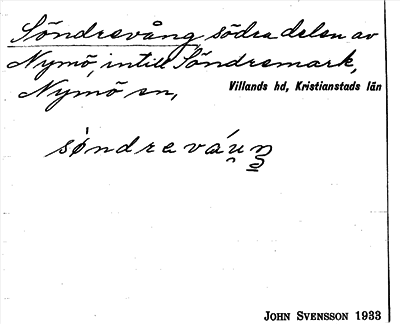 Söndrevång södra delen av
Nymö, intill Söndremark,
Nymö sn,
Villands hd, Kristianstads län
sø̀ndreváu̯ŋ
JOHN SVENSSON 1933